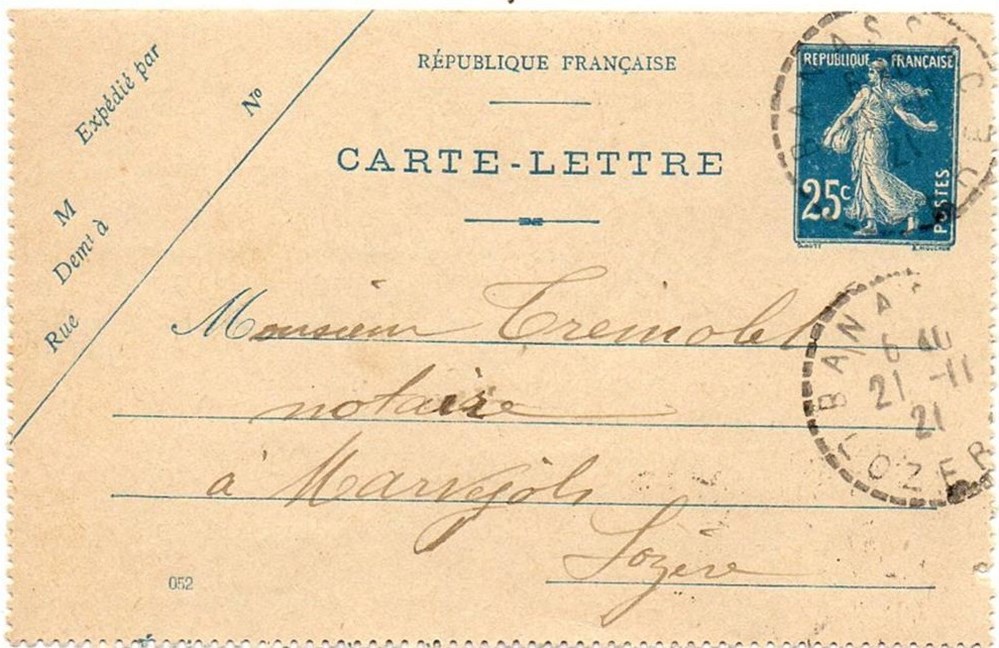 Expédié par
N°
M
Demt à
Rue
RÉPUBLIQUE FRANÇAISE
CARTE-LETTRE
RÉPUBLIQUE FRANÇAISE
25c
POSTES
BANASSAC
21
Monsieur Tremolet
notaire
à Marvejols
Lozère
BANA
6 40
21 -11
21
LOZER
052